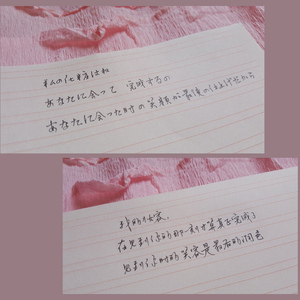 私の化粧はね
あなたに会って 完成するの
あなたに会った時の笑顔が最後の仕上げだから
我的妆容,
在见到你的那一刻才算真正完成了
见到你时的笑容是最后的润色